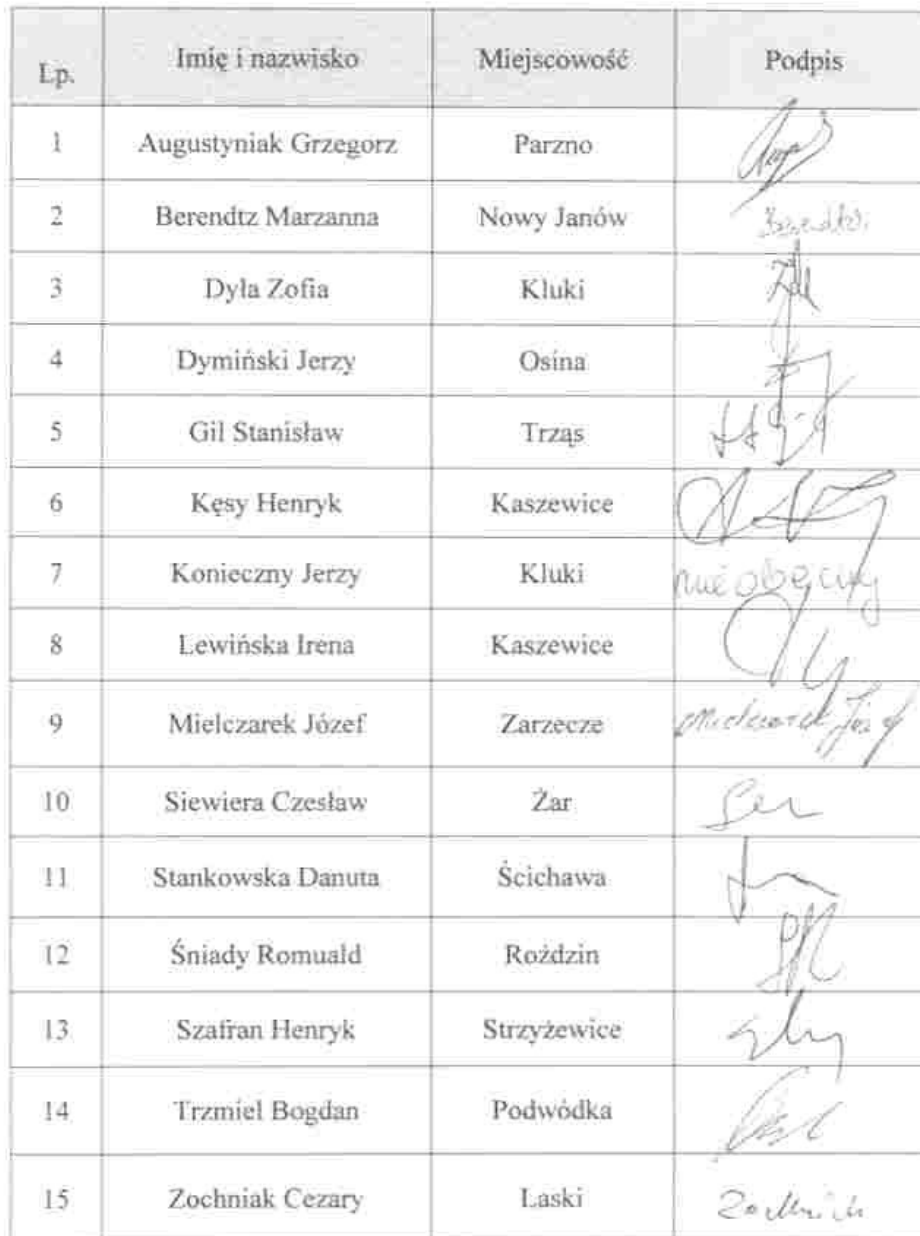 Lp. Imię i nazwisko Miejscowość Podpis
1 Augustyniak Grzegorz Parzno
2 Berendtz Marzanna Nowy Janów
3 Dyła Zofia Kluki
4 Dymiński Jerzy Osina
5 Gil Stanisław Trząs
6 Kęsy Henryk Kaszewice
7 Konieczny Jerzy Kluki nieobecny
8 Lewińska Irena Kaszewice
9 Mielczarek Józef Zarzecze Mielczarek Józef
10 Siewiera Czesław Żar
11 Stankowska Danuta Ścichawa
12 Śniady Romuald Roździn
13 Szafran Henryk Strzyżewice
14 Trzmiel Bogdan Podwódka
15 Zochniak Cezary Laski